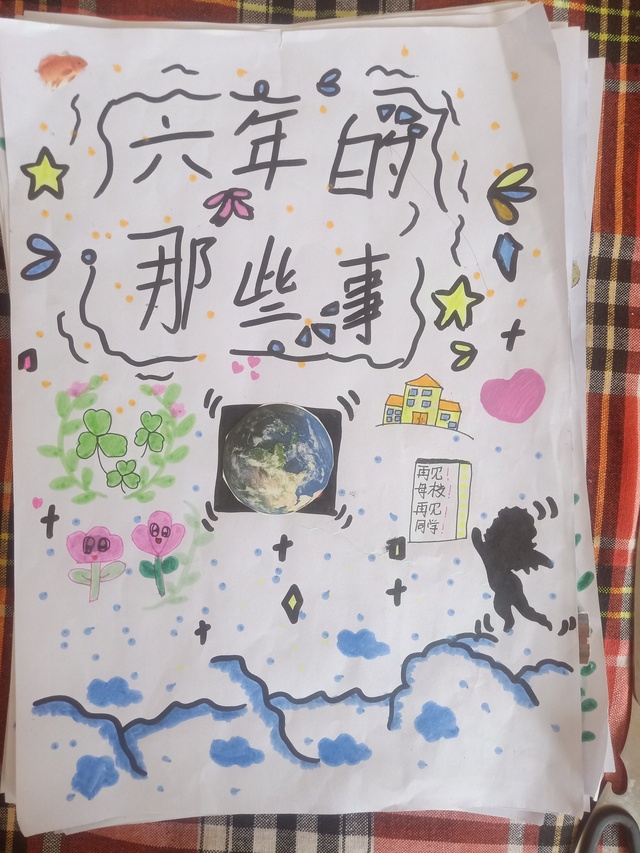 六年的
那些事
再见!
母校!
再见!
同学!